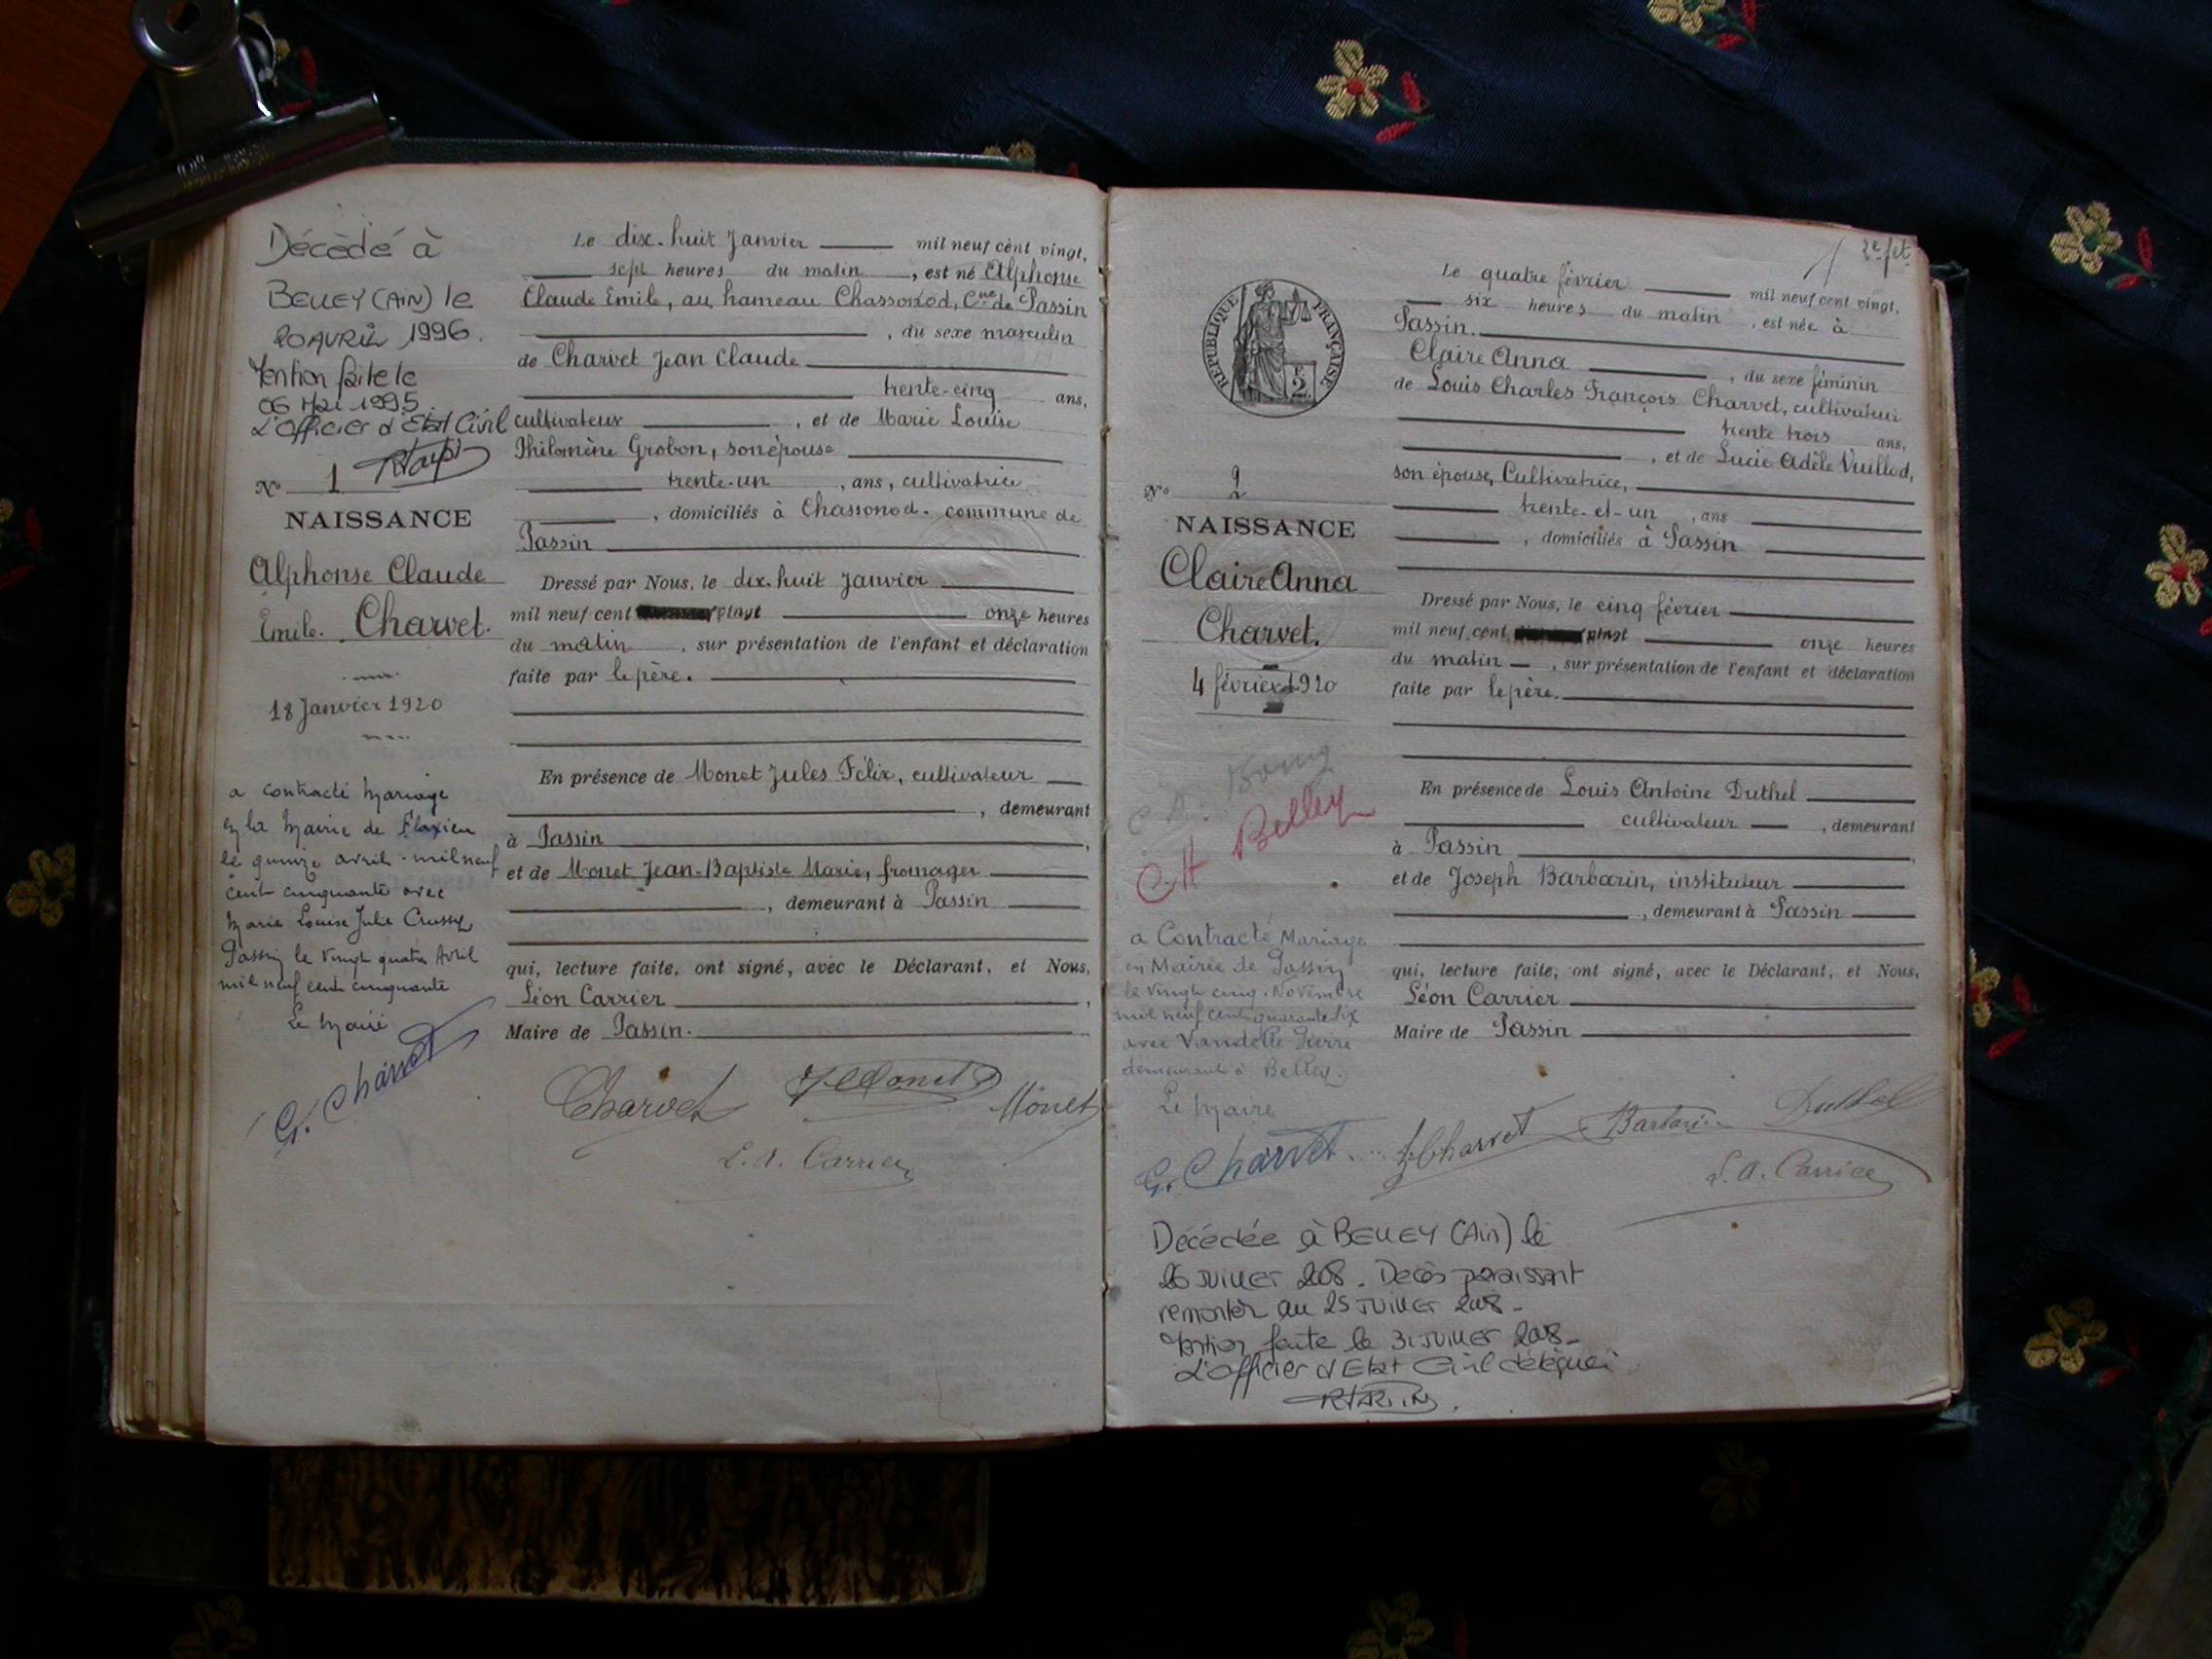 Décédé à
BELLEY (AIN) le
20 AVRIL 1996.
Mention faite le
06 Mai 1995
L'Officier d'Etat Civil
N° 1
NAISSANCE
Alphonse Claude
Emile. Charvet.
18 Janvier 1920
a contracté mariage
en la mairie de Flaxieu
le quinze avril mil neuf
cent cinquante avec
Marie Louise Julie
Passin le vingt quatre Avril
mil neuf cent cinquante
Le Maire
G. Charvet
Le dix-huit Janvier mil neuf cent vingt,
sept heures du matin, est né Alphonse
Claude Emile, au hameau Chassonod, Cne de Passin
, du sexe masculin
de Charvet Jean Claude
trente-cinq ans,
cultivateur, et de Marie Louise
Philomène Grobon, son épouse
trente-un, ans, cultivatrice
, domiciliés à Chassonod. commune de
Passin
Dressé par Nous, le dix-huit Janvier
mil neuf cent vingt onze heures
du matin, sur présentation de l'enfant et déclaration
faite par le père.
En présence de Monet Jules Félix, cultivateur
, demeurant
à Passin,
et de Monet Jean-Baptiste Marie, fromager
, demeurant à Passin
qui, lecture faite, ont signé, avec le Déclarant, et Nous,
Léon Carrier,
Maire de Passin.
Charvet J Monet Monet
L. A. Carrier
2e fet
N° 2
NAISSANCE
Claire Anna
Charvet.
4 février 1920
REPUBLIQUE FRANÇAISE
C.H Belley
a Contracté Mariage
en Mairie de Passin
le vingt cinq Novembre
mil neuf cent quarante six
avec Vandelle Pierre
demeurant à Belley.
Le Maire
G. Charvet
Le quatre février mil neuf cent vingt,
six heures du matin, est née à
Passin.
Claire Anna, du sexe féminin
de Louis Charles François Charvet, cultivateur
trente trois ans,
, et de Lucie Adèle Vuillod,
son épouse, Cultivatrice,
trente-et-un, ans
, domiciliés à Passin
Dressé par Nous, le cinq février
mil neuf cent vingt onze heures
du matin, sur présentation de l'enfant et déclaration
faite par le père.
En présence de Louis Antoine Duthel
cultivateur, demeurant
à Passin,
et de Joseph Barbarin, instituteur
, demeurant à Passin
qui, lecture faite, ont signé, avec le Déclarant, et Nous,
Léon Carrier
Maire de Passin
L Charvet Barbarin Duthel
L. A. Carrier
Décédée à BELLEY (Ain) le
26 JUILLET 2008. Décès paraissant
remonter au 25 JUILLET 2008 -
Mention faite le 31 JUILLET 2008 -
L'Officier d'Etat Civil délégué